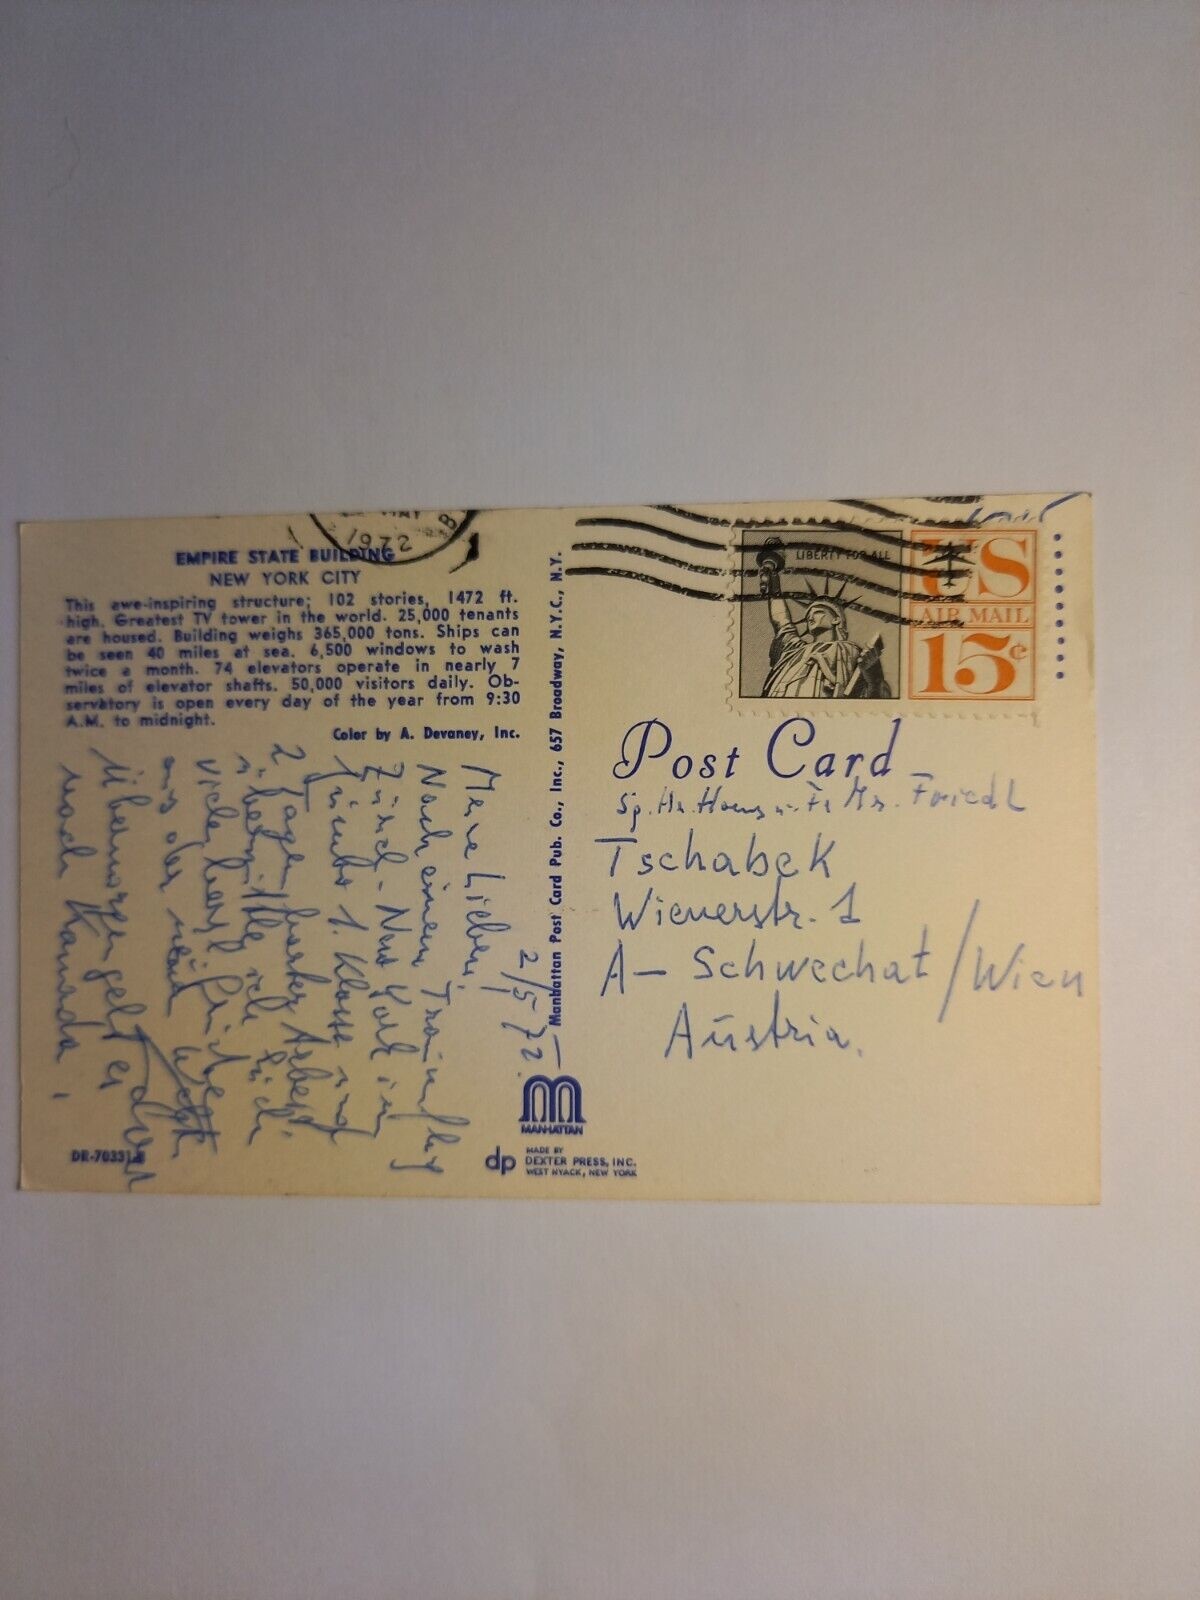 MAY
1972
B
EMPIRE STATE BUILDING
NEW YORK CITY
This awe-inspiring structure; 102 stories, 1472 ft.
high. Greatest TV tower in the world. 25,000 tenants
are housed. Building weighs 365,000 tons. Ships can
be seen 40 miles at sea. 6,500 windows to wash
twice a month. 74 elevators operate in nearly 7
miles of elevator shafts. 50,000 visitors daily. Ob-
servatory is open every day of the year from 9:30
A.M. to midnight.
Color by A. Devaney, Inc.
2/5/72.
Meine Lieben,
Nach einem Traumflug
Zürich - New York im
Jumbo 1. Klasse und
2 Tagen harter Arbeit,
übermittle ich Euch
viele herzl. Grüsse
aus der neuen Welt.
Übermorgen geht es
nach Kanada.
DR-70331-B
Manhattan Post Card Pub. Co., Inc., 657 Broadway, N.Y.C., N.Y.
MANHATTAN
dp
MADE BY
DEXTER PRESS, INC.
WEST NYACK, NEW YORK
LIBERTY FOR ALL
US
AIR MAIL
15c
Post Card
Friedl
Tschabek
Wienerstr. 1
A- Schwechat/Wien
Austria.